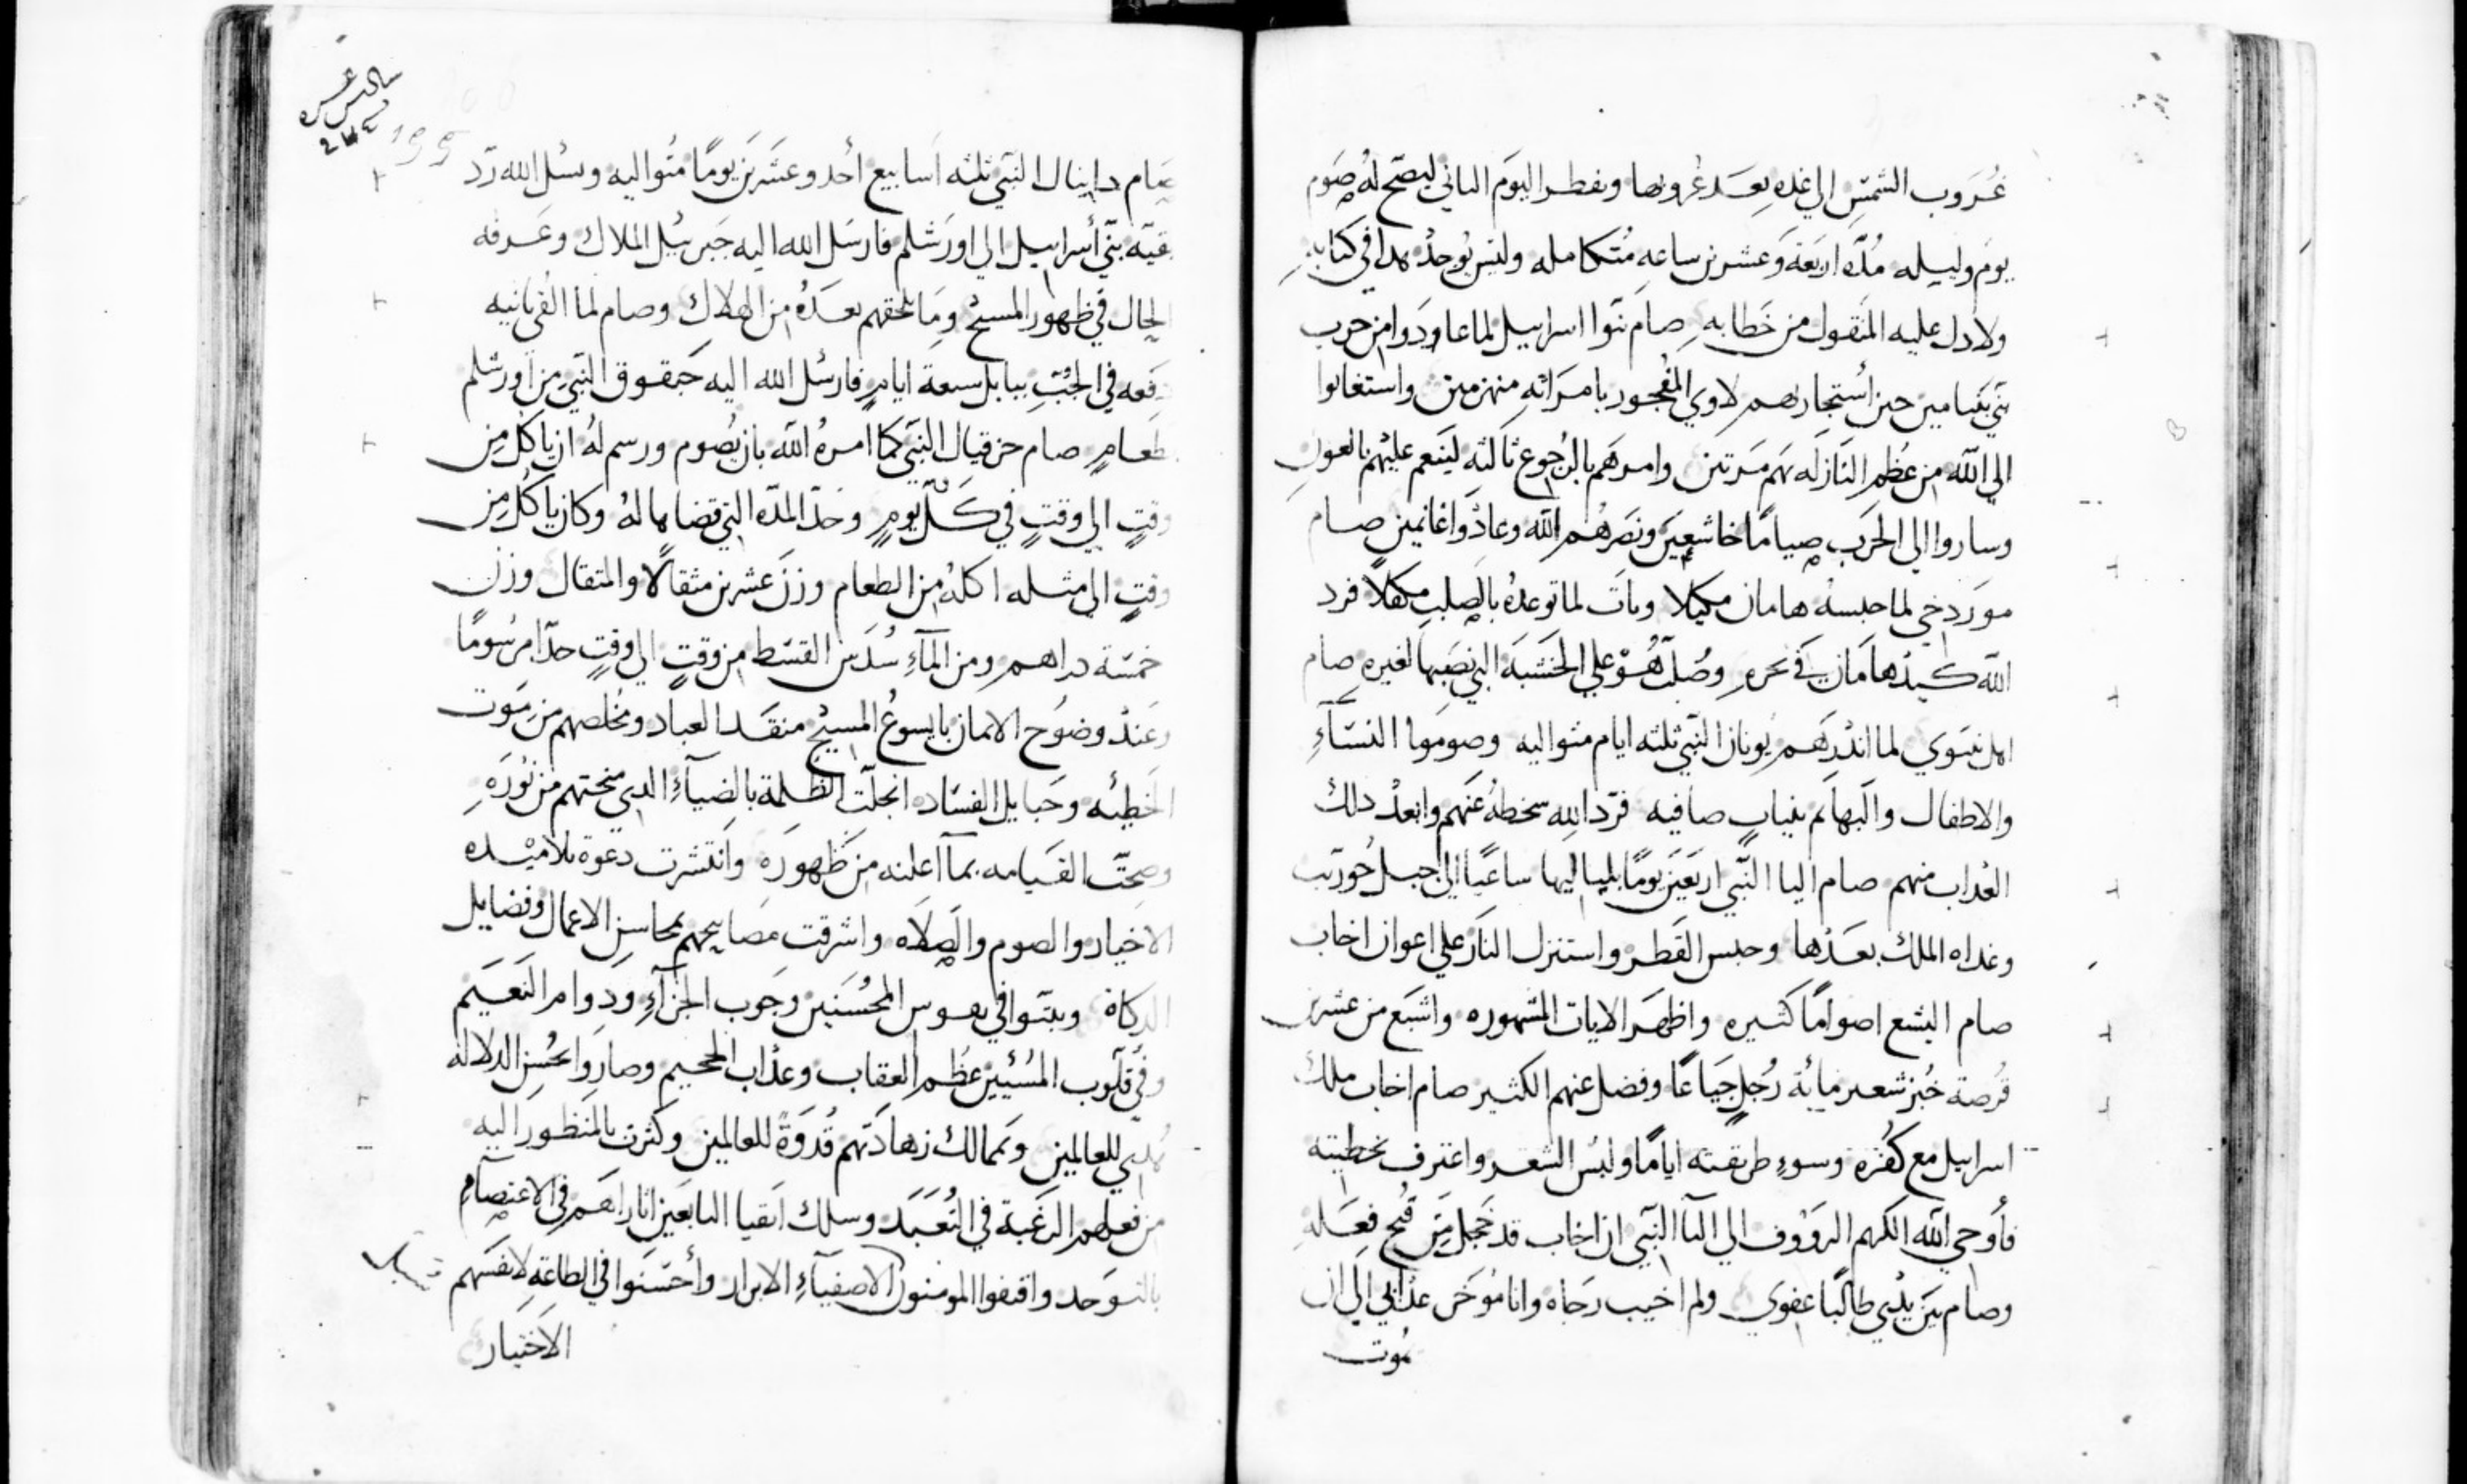 غُرَوب الشمسِ الي غدهِ بعَد غُروبها ويفطر اليوَم الثاني ليصَح لهُ صَوم
يوم وليله مُدّه اربَعَة وَعشرين ساعه مُتكامله وليس يُوجدُ هدا في كتابهِ
ولا دل عليه المنقول من خَطابهِ صام بنوا اسراييل لما عاوَدوا من حرب
بَني بنيامين حين أستجار بهم لاوي المفجور بامَرَاتهِ منهزمين واستغاثوا
الي الله من عُظم النَازلَه بهَم مَرتين وامرهَم بالرجُوع ثالثه لينعم عليهم بالعون
وساروا الي الحَرَب صيامًا خاشعينَ ونصَرهُم الله وعادُوا غانمين صام
موَردخي لما حبسهُ هامان مكبلا وباتَ لما توعدهُ بالصلب مكفلاً فرد
الله كيدُ هامَان في نحرهِ وصُلبَ هُوَ علي الخشبَه التي نصَبها لغيره صام
اهل نينَوي لما اندرهَم يونان النبي ثلثه ايام متواليه وصومَوا النسَآءِ
والاطفال والبهآئم بثيابٍ صافيه فرّد الله سخطهُ عنهَم وابعدُ دلك
العُداب منهم صام اليا النَبي اربَعَينَ يومًا بلياليها ساعيًا الي جبل حُوريب
وغداه الملك بعَدُها وحبس القَطر واستنزل النَار علي اعوان اخاب
صام اليشع اصوامًا كثيره واظهَر الايات المشهوره واشبَع من عشرين
قُرصة خُبز شعير مايةُ رُجلٍ جَياعًا وفضل عنهم الكثير صام اخاب ملك
اسراييل مع كفُره وسوءِ طريقته ايامًا ولبُس الشعَر واعترف بخطيته
فأوحي الله الكريم الروَوف الي اليآ النبي ان اخاب قد خجل من قبُح فِعَلهِ
وصام بيَن يدُي طالبًا عفوي ولم اخيب رجَاه وانا مُوخَر عدابي الي ان
يموت
صَام دانيال النبي ثلثه اسابيع أحد وعشَرينَ يومًا متُواليه وسُل الله رَد
بقيّه بَني أسراييل الي اورَشلم فارسَل الله اليه جَبرييُل الملاك وعَرفه
الحال في ظهور المسيح ومَا يلحقهم بعَدهُ من الهلاك وصام لما القي ثانيه
دفعه في الجُبّ ببابل سبعة ايامٍ فارسُل الله اليه حَبقوق النبي من اورشلم
بطعامٍ صام حزقيال النبي كما امرهُ الله بان يُصوم ورسم لهُ ان ياكل من
وقتٍ الي وقتٍ في كلّ يومٍ وحَدّ المدّه التي قضاها لهُ وكان ياكُل من
وقتٍ الي مثله اكلهُ من الطعام وزنَ عشرين مثقالاً والمثقال وزن
خمسَة دراهم ومن المآءِ سُدَس القسَط من وقتٍ الي وقتٍ حدّا مرسُومًا
وعَندُ وضوُح الايمان بايسوعُ المسيح منقَد العباد ومخُلصهم من مَوت
الخَطيُه وحَبايل الفسَاد انجلَت الظلمة بالضيآءِ الدي منحتهم من نُورَهِ
وصحَّت القَيامه بمآ اعلنه مَن ظَهورَهِ وانَتشرت دعَوة تلاميُده
الاخيار والصوم والصَلاه واشرقت مَصابيحهم بمحاسن الاعمال وفضايل
الزكاة وبثَوا في نفوس المحُسَنين وجَوب الجزآءِ ودوام النعَيَم
وفي قلَوب المسُيين عُظم العقاب وعدُاب الجحيم وصاروا بحُسن الدلاله
هُدَي للعالمين وتمَالك زهادَتهم قُدوَةً للعالمين وكثَرت بالمنظور اليه
من فعلهم الرَغَبة في التُعَبَد وسلك اتقيا التابعَين اثارهَم في الاعتصَام
بالتوَحد واقتفوا المومنون الاصفيآءِ الابرار وأحسَنَوا في الطاعَهِ لانفسَهم
الاَختيار
199